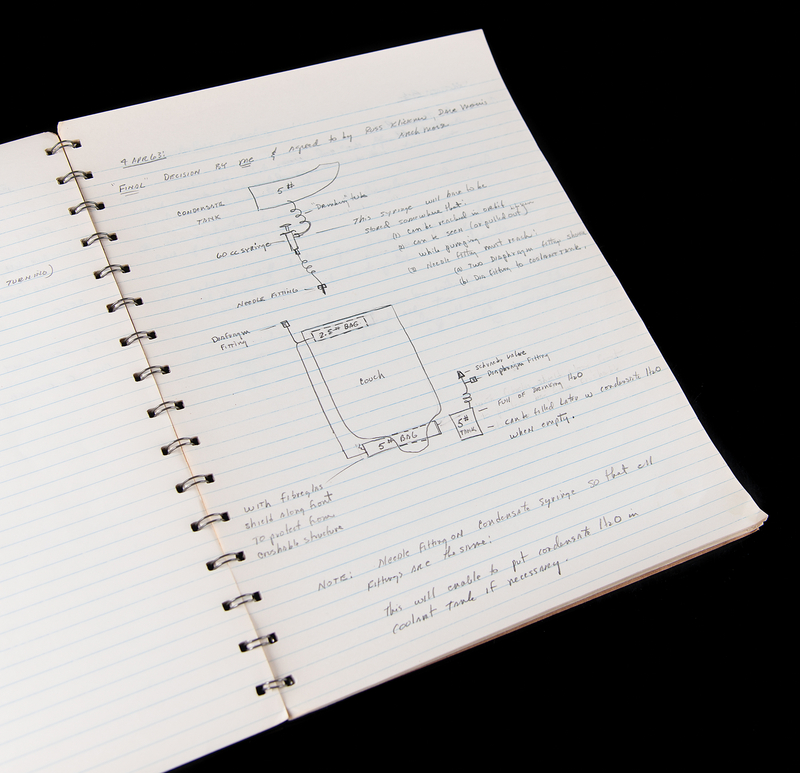 TURNING)
4 APR 63:
"FINAL" DECISION BY me & agreed to by
and more
CONDENSATE
TANK
5#
"Drinking" tube
60 cc SYRINGE
This syringe will have to be
stored somewhere that:
(1) can be reached in orbit
(2) can be seen (or pulled out)
while pumping
(3) Needle fitting must reach:
(a) Two Diaphragm fittings
(b) Dia fitting to coolant tank.
NEEDLE FITTING
Diaphragm
Fitting
2.5# BAG
couch
schrader valve
Diaphragm Fitting
5#
TANK
Full of Drinking H2O
can be filled later w condensate H2O
when empty.
5# BAG
with fibreglas
shield along front
to protect from
crushable structure
NOTE: Needle Fitting on Condensate syringe so that all
Fittings are the same:
This will enable to put condensate H2O in
coolant Tank if necessary.